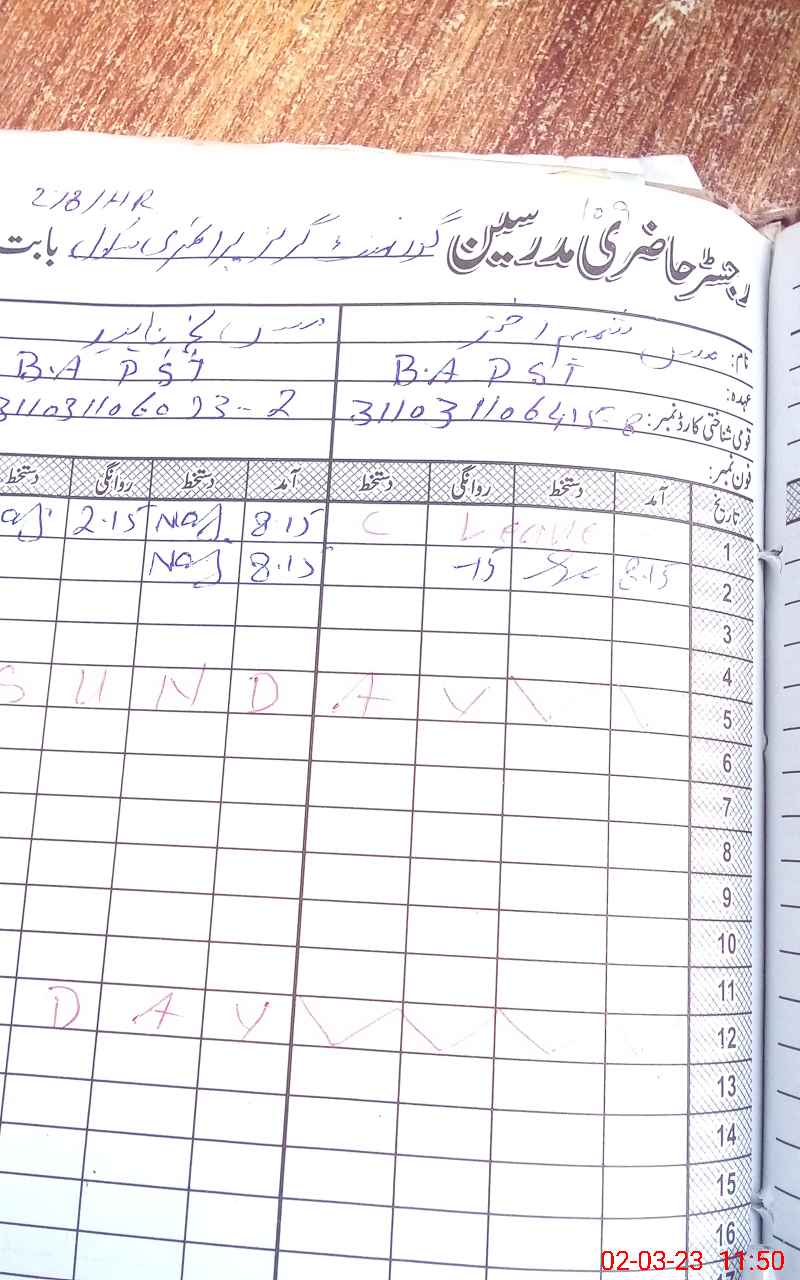 109
278/HR
رجسٹر حاضری مدرسین گورنمنٹ گرلز پرائمری سکول بابت
نام: مدرس شمیم اختر مدرس
عہدہ: B.A PST B.A PST
قومی شناختی کارڈ نمبر: 3110311106415-8
فون نمبر:
تاریخ آمد دستخط روانگی دستخط آمد دستخط روانگی دستخط
1 C Leave 8.15 Naj 2.15 Naj
2 8.15 -15 8.15 Naj
3
4
5 SUNDAY
6
7
8
9
10
11
12 DAY
13
14
15
16
02-03-23 11:50